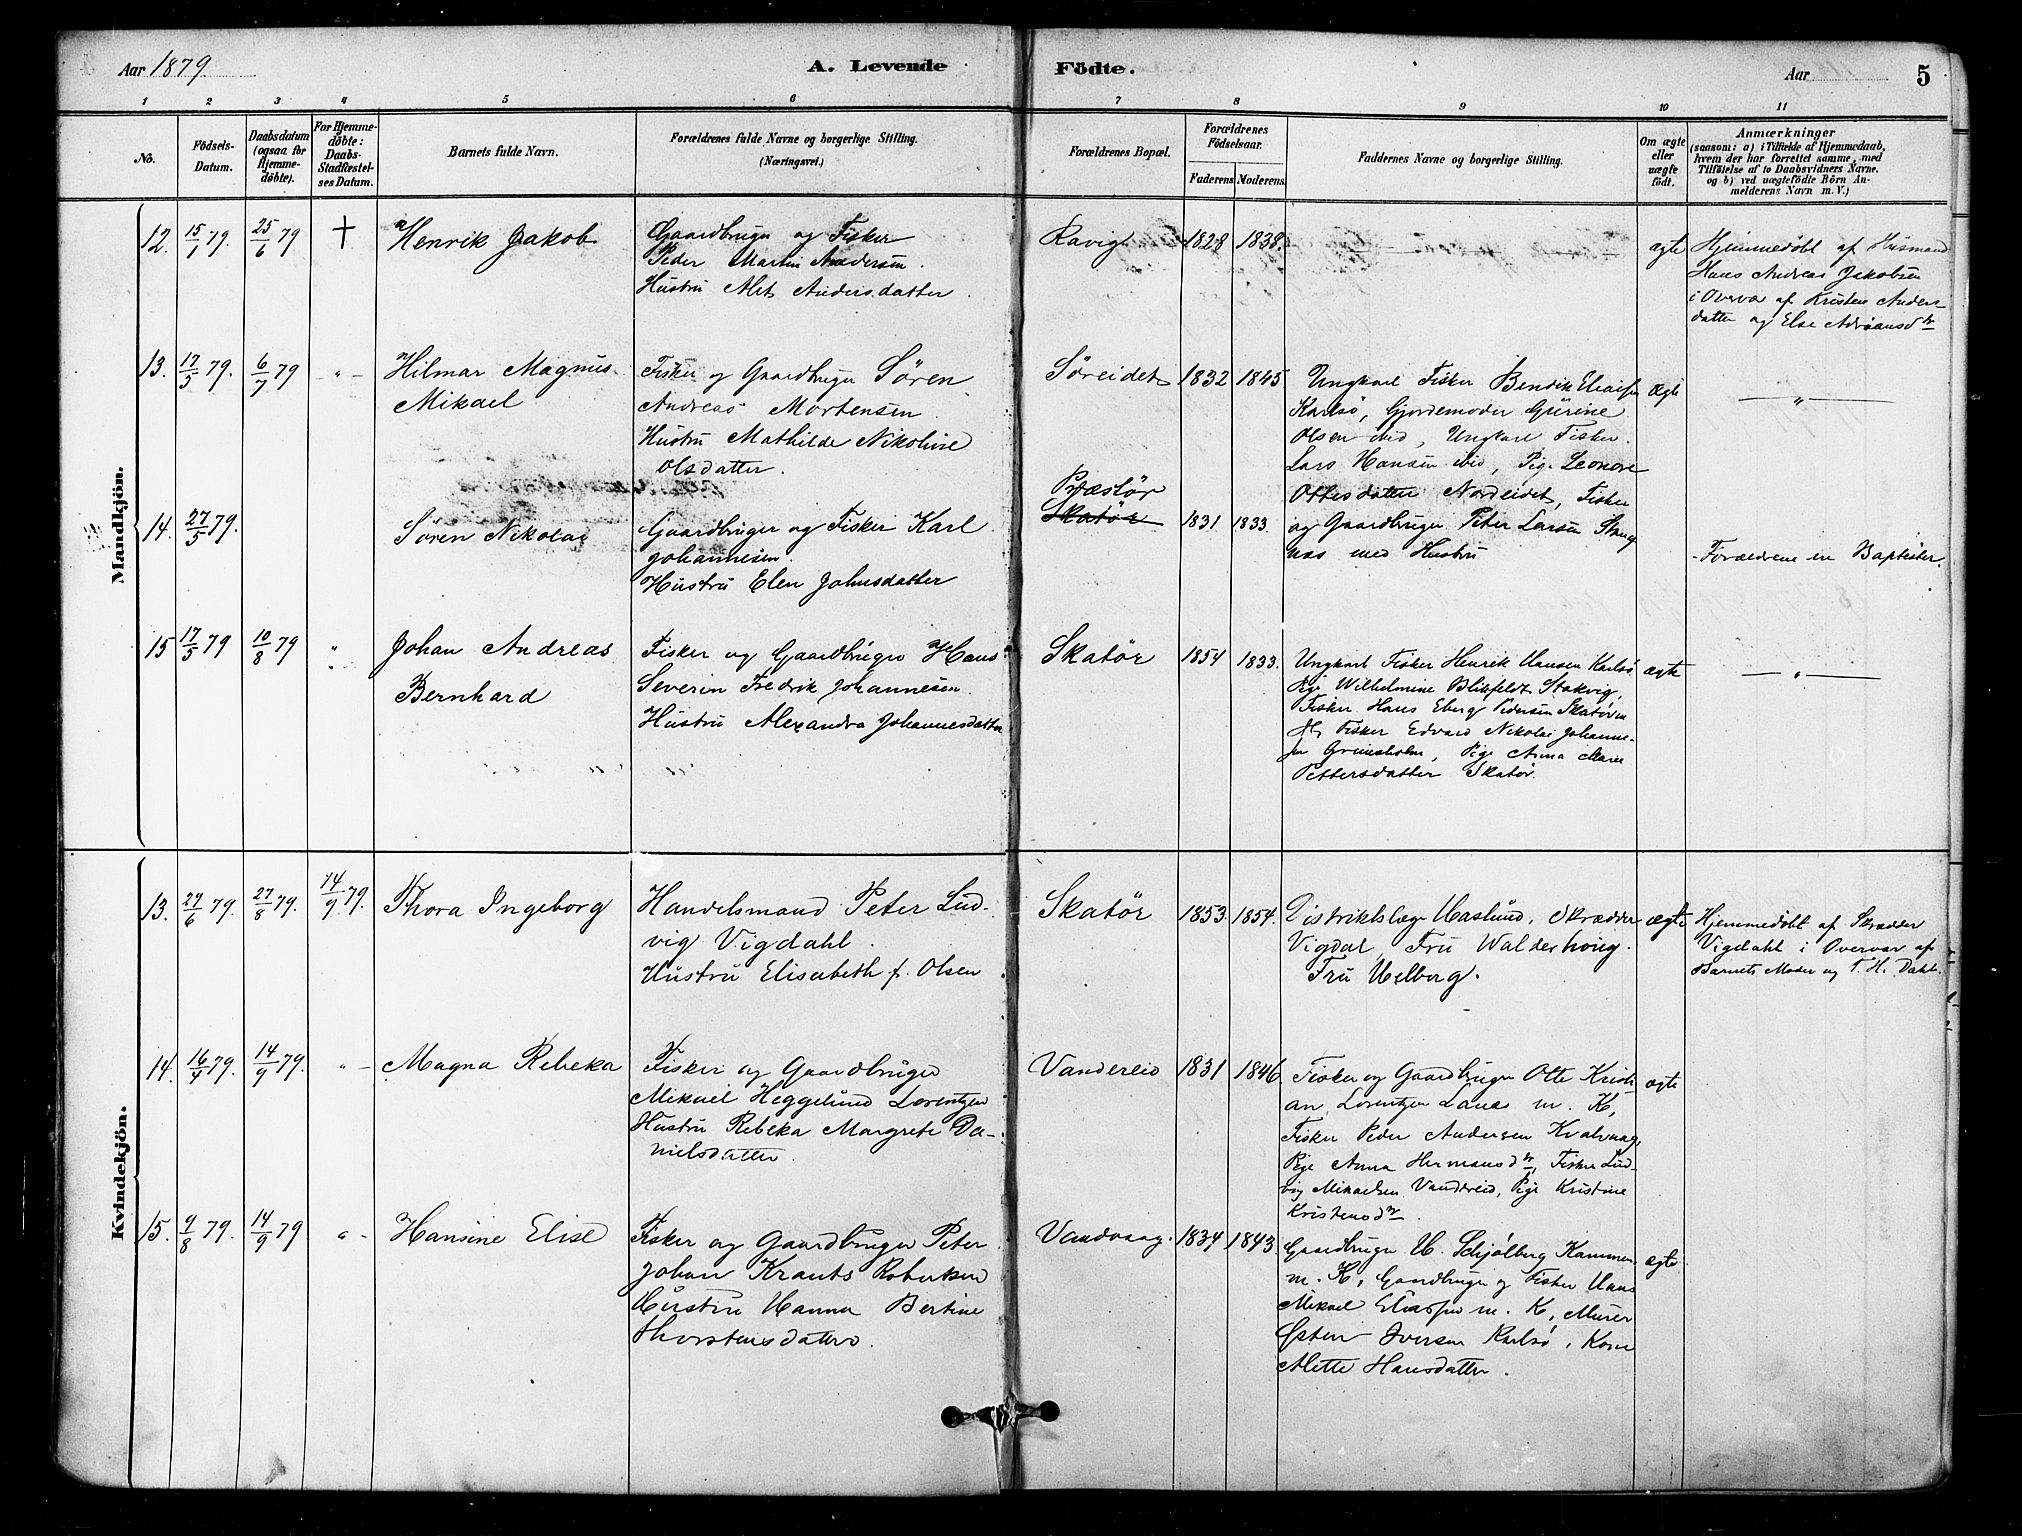 Aar 1879.
A. Levende
Födte.
Aar
5
1 2 3 4 5 6 7 8 9 10 11
No.
Födsels-
Datum.
Daabsdatum
(ogsaa for
Hjemme-
döbte).
For Hjemme-
döbte:
Daabs-
Stadfæstel-
ses Datum.
Barnets fulde Navn.
Forældrenes fulde Navne og borgerlige Stilling.
(Næringsvei.)
Forældrenes Bopæl.
Forældrenes
Födselsaar.
Faderens.
Moderens.
Faddernes Navne og borgerlige Stilling.
Om ægte
eller
uægte
födt.
Anmærkninger
(saasom: a) i Tilfælde af Hjemmedaab,
hvem der har forrettet samme, med
Tilföielse af to Daabsvidners Navne,
og b) ved uægtefödte Börn An-
melderens Navn m. V.)
Mandkjön.
12. 15/1 79. 25/6 79 †
Henrik Jakob
Gaardbruger og Fisker
Peder Martin Andersen.
Hustru Alet Andersdatter.
Ravig 1828 1838.
ægte
Hjemmedøbt af Husmand
Hans Andreas Jakobsen
i Overvar af Kristen Anders-
datter og Else Adriansdtr
13. 17/5 79. 6/7 79 - " -
Hilmar Magnus
Mikael
Fisker og Gaardbruger Søren
Andreas Mortensen.
Hustru Mathilde Nikoline
Olsdatter.
Søreidet 1832 1845
Ungkarl Fisker Bendik Eliasen
Karlsø, Gjordemoder Gurine
Olsen ibid, Ungkarl Fisker
Lars Hansen ibid, Pige Leonore
Ottesdatter Nordeidet, Fisker
og Gaardbruger Peter Larsen Stang
næs med Hustru
ægte
— " —
14. 27/5 79.
Søren Nikolai
Gaardbruger og Fisker Karl
Johannesen.
Hustru Elen Johnsdatter
Præstør
Skatør
1831 1833
- Forældrene ere Baptister.
15 17/5 79 10/8 79 "
Johan Andreas
Bernhard
Fisker og Gaardbruger Hans
Severin Fredrik Johannesen.
Hustru Alexandra Johannesdatter
Skatør 1854 1833.
Ungkarl Fisker Henrik Hansen Karlsø
Pige Wilhelmine Blixfeldt Stakvig,
Fisker Hans Eberg Pedersen Skatør m
H, Fisker Edvard Nikolai Johanne-
sen Grimsholm, Pige Anna Marie
Pettersdatter Skatør.
ægte
— " —
Kvindekjön.
13. 24/6 79. 27/8 79. 14/9 79.
Thora Ingeborg
Handelsmand Peter Lud-
vig Vigdahl.
Hustru Elisabeth f. Olsen
Skatør 1853 1854.
Distriktslæge Haslund, Skrædder
Vigdal, Fru Walderhoug.
Fru Helberg.
ægte
Hjemmedøbt af Skrædder
Vigdahl i Overvar af
Barnets Moder og T. H. Dahl.
14. 16/4 79. 14/9 79. "
Magna Rebeka
Fisker og Gaardbruger
Mikael Heggelund Lorentzen
Hustru Rebeka Margrete Da-
nielsdatter.
Vandereid 1831 1846
Fisker og Gaardbruger Otte Kristi
an Lorentzen Lanes m. K,
Fisker Peder Andersen Kvalvaag,
Pige Anna Hermansdtr, Fisker Lud-
vig Mikaelsen Vandereid, Pige Kristine
Kristensdtr.
ægte
15. 9/8 79. 14/9 79 "
Hansine Elise
Fisker og Gaardbruger Peter
Johan Krants Robertsen
Hustru Hanna Bertine
Thorstensdatter.
Vandvaag. 1834 1843.
Gaardbruger H. Schjølberg Kammen
m. K, Gaardbruger og Fisker Hans
Mikael Eliassen m. K, Murer
Østen Iversen Karlsø, Kone
Alette Hansdatter.
ægte